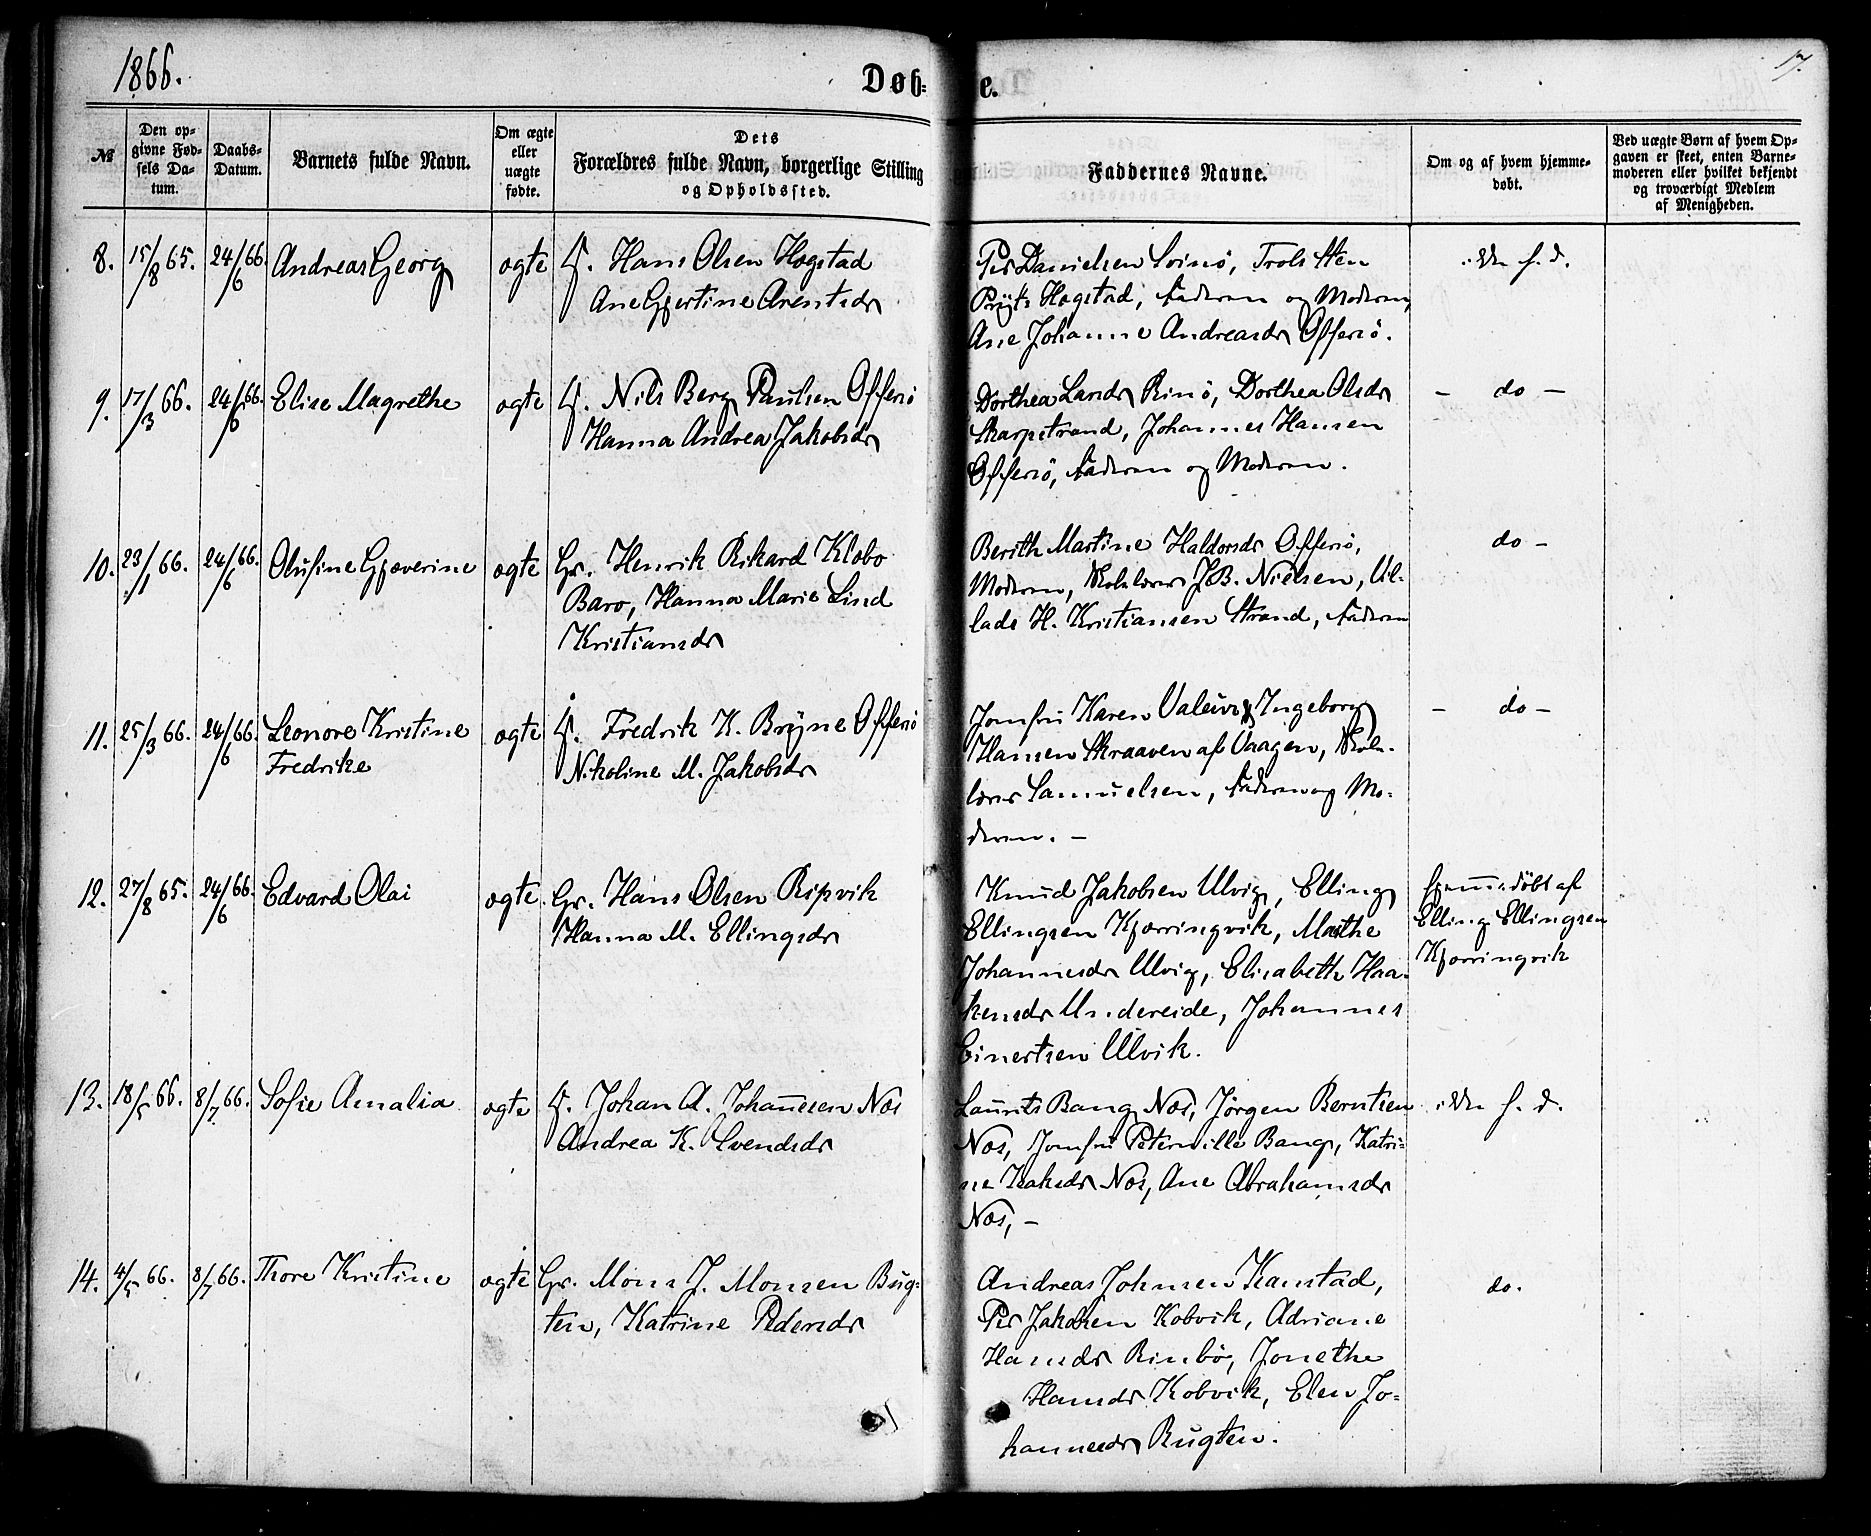 1866.
Døb=
e.
17.
№
Den op-
givne Fød-
sels Da-
tum.
Daabs-
Datum.
Barnets fulde Navn.
Om ægte
eller
uægte
fødte.
Dets
Forældres fulde Navn, borgerlige Stilling
og Opholdssted.
Faddernes Navne.
Om og af hvem hjemme-
døbt.
Ved uægte Børn af hvem Op-
gaven er skeet, enten Barne-
moderen eller hvilket bekjendt
og troværdigt Medlem
af Menigheden.
8. 15/8 65. 24/6 66. Andreas Georg ægte Hans Olsen Hogstad
Ane Gjertine Arentsdr
Per Danielsen Svinø, Trols Sten
Hogstad, Faderen og Moderen,
Ane Johanne Andreasdr Offersø.
ikke h. d.
9. 17/3 66. 24/6 66. Elise Magrethe ægte Nils Berg Paulsen Offersø
Hanna Andrea Jakobsdr
Dorthea Larsdr Rinø, Dorthea Olsdr
Skarpstrand, Johannes Hansen
Offersø, Faderen og Moderen.
- do -
10. 23/1 66. 24/6 66. Olufine Gjæverine ægte Gr. Henrik Rikard Klobo
Barø, Hanna Marie Lind
Kristiansdr
Berith Martine Haldorsdr Offersø,
Moderen, Skolelærer J.B. Nielsen, Ul-
lads H. Kristiansen Strand, Faderen
do -
11. 25/3 66. 24/6 66. Leonore Kristine
Fredrike
ægte Fredrik K. Bryne Offersø
Nikoline M. Jakobsdr
Jomfru Karen Ingeborg
Hansen Skraaven af Vaagen, Skole-
lærer Samuelsen, Faderen og Mo-
deren. -
- do -
12. 27/8 65. 24/6 66. Edvard Olai ægte Gr. Hans Olsen Ripvik
Hanna M. Ellingsdr
Knud Jakobsen Ulvig, Elling
Ellingsen Kjærringvik, Marthe
Johannesdr Ulvig, Elisabeth Haa-
kensdr Undereide, Johannes
Einertsen Ulvik.
hjemmedøbt af
Elling Ellingsen
Kjærringvik
13. 18/5 66. 8/7 66. Sofie Amalia ægte Johan A. Johannesen Næs
Andrea K. Svendsdr
Laurits Bang Næs, Jørgen Berntsen
Næs, Jomfru Peternille Bang, Katri-
ne Isaksdr Næs, Ane Abrahamsdr
Næs, -
ikke h. d.
14. 4/5 66. 8/7 66. Thore Kristine ægte Gr. Mons J. Monsen Bug-
ten, Katrine Pedersdr
Andreas Johnsen Kanstad,
Per Jakobsen Kobvik, Adriane
Hansdr Rinbø, Jonethe
Hansdr Kobvik, Elen Jo-
hannesdr Bugten.
do.